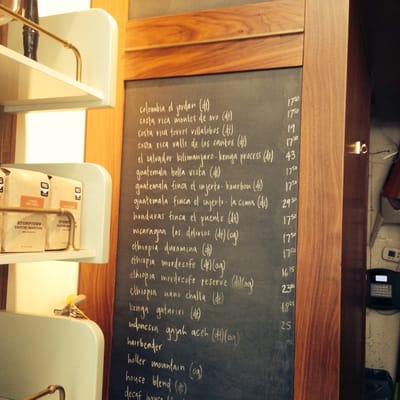 colombia el jordan (dt) 17⁵⁰
costa rica montes de oro (dt) 17⁵⁰
costa rica torres villalobos (dt) 19
costa rica valle de los santos (dt) 17⁵⁰
el salvador kilimanjaro-kenya process (dt) 43
guatemala bella vista (dt) 17⁵⁰
guatemala finca el injerto-bourbon (dt) 17⁵⁰
guatemala finca el injerto-la cima (dt) 29⁵⁰
honduras finca el puente (dt) 17⁵⁰
nicaragua los delirios (dt)(og) 17⁵⁰
ethiopia duromina (dt) 17⁵⁰
ethiopia mordecofe (dt)(og) 16⁷⁵
ethiopia mordecofe reserve (dt)(og)
ethiopia nano challa (dt)
kenya gaturiri (dt)
indonesia gajah aceh (dt)(og) 25
hairbender
holler mountain (og)
house blend
decaf house
STUMPTOWN